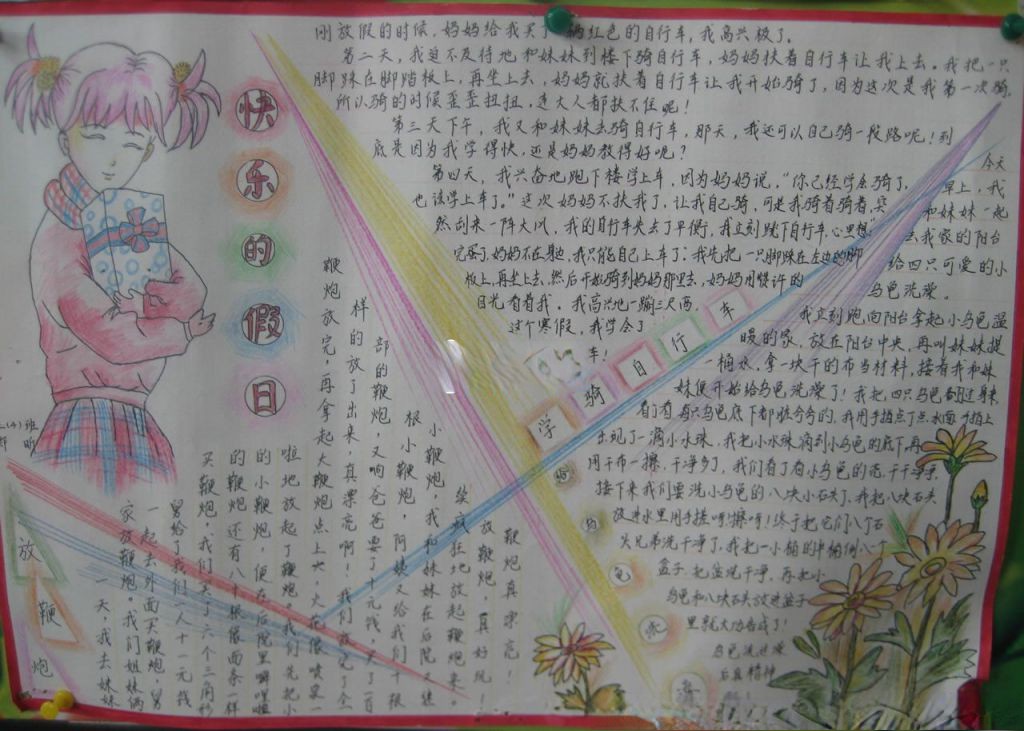 快乐的假日
刚放假的时候，妈妈给我买了一辆红色的自行车，我高兴极了。
第二天，我迫不及待地和妹妹到楼下骑自行车，妈妈扶着自行车让我上去。我把一只
脚踩在脚踏板上，再坐上去，妈妈就扶着自行车让我开始骑了，因为这次是我第一次骑，
所以骑的时候歪歪扭扭，连大人都扶不住呢！
第三天下午，我又和妹妹去骑自行车，那天，我还可以自己骑一段路呢！到
底是因为我学得快，还是妈妈教得好呢？
第四天，我兴奋地跑下楼学上车，因为妈妈说，“你已经学会骑了，
也该学上车了。”这次妈妈不扶我了，让我自己骑，可是我骑着骑着，突
然刮来一阵大风，我的自行车失去了平衡，我立刻跳下自行车，心里想
完蛋了，妈妈不在身边，我只能自己上车了；我先把一只脚踩在左边的脚
板上，再坐上去，然后开始骑到妈妈那里去，妈妈用赞许的
目光看着我。我高兴地一蹦三尺高。
这个寒假，我学会了
车！
学骑自行车
今天
早上，我
和妹妹一起
去我家的阳台
给四只可爱的小
乌龟洗澡。
我立刻跑向阳台拿起小乌龟温
暖的家，放在阳台中央，再叫妹妹提
一桶水，拿一块干的布当材料，接着我和妹
妹便开始给乌龟洗澡了！我把四只乌龟翻过身来
看了看
我用手指点了点水面，手指上
出现了一滴小水珠，我把小水珠滴到小乌龟的底下再
用干布一擦，干净多了，我们看了看小乌龟的壳，干干净净，
接下来我们要洗小乌龟的八块小石头了，我把八块石头
放进水里用手搓呀！擦呀！终于把它们八个石
头兄弟洗干净了，我把一小桶的水桶倒八个
盒子，把盆洗干净，再把小
乌龟和八块石头放进盆子
里就大功告成了！
乌龟洗过澡
后真精神
给乌龟
放鞭炮
一天，我去妹妹
家放鞭炮，我们姐妹俩
一起去外面买鞭炮，舅
舅给了我们一人十一元钱
买鞭炮，我们买了六个三角形
的鞭炮，还有八个很像面条一样
的小鞭炮，便在后院里噼哩啪
啦地放起了鞭炮。我们先把小
鞭炮放完，再拿起大鞭炮点上火，火花像喷泉一
样的放了出来，真漂亮啊！我们放完了全
部的鞭炮，又向爸爸要了十元钱，买了一百
根小鞭炮，阿姨又给我们几十根
小鞭炮，我和妹妹在后院又继
续疯狂地放起鞭炮来。
放鞭炮，真好玩！
鞭炮真漂亮！